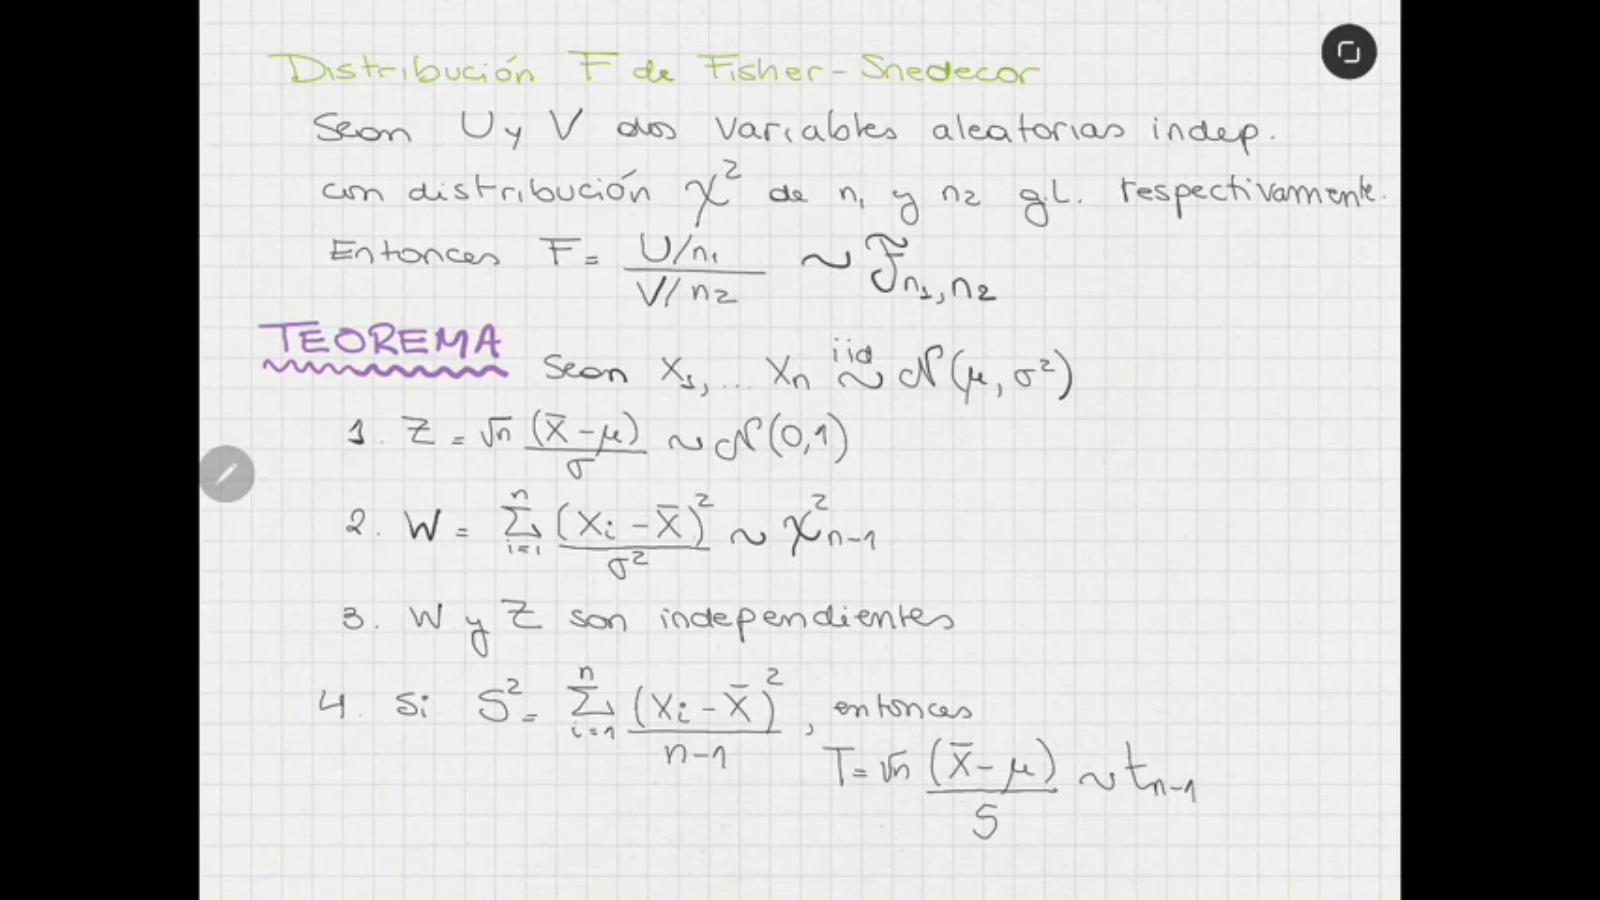 Distribución F de Fisher-Snedecor
Sean U y V dos variables aleatorias indep.
con distribución χ² de n₁ y n₂ g.l. respectivamente.
Entonces F = (U/n₁)/(V/n₂) ~ F_{n₁,n₂}
TEOREMA Sean X₁,... Xn iid ~ N(μ, σ²)
1. Z = √n (X̄-μ)/σ ~ N(0,1)
2. W = Σ_{i=1}^{n} (Xi - X̄)²/σ² ~ χ²_{n-1}
3. W y Z son independientes
4. Si S² = Σ_{i=1}^{n} (Xi - X̄)²/(n-1), entonces
T = √n (X̄-μ)/S ~ t_{n-1}